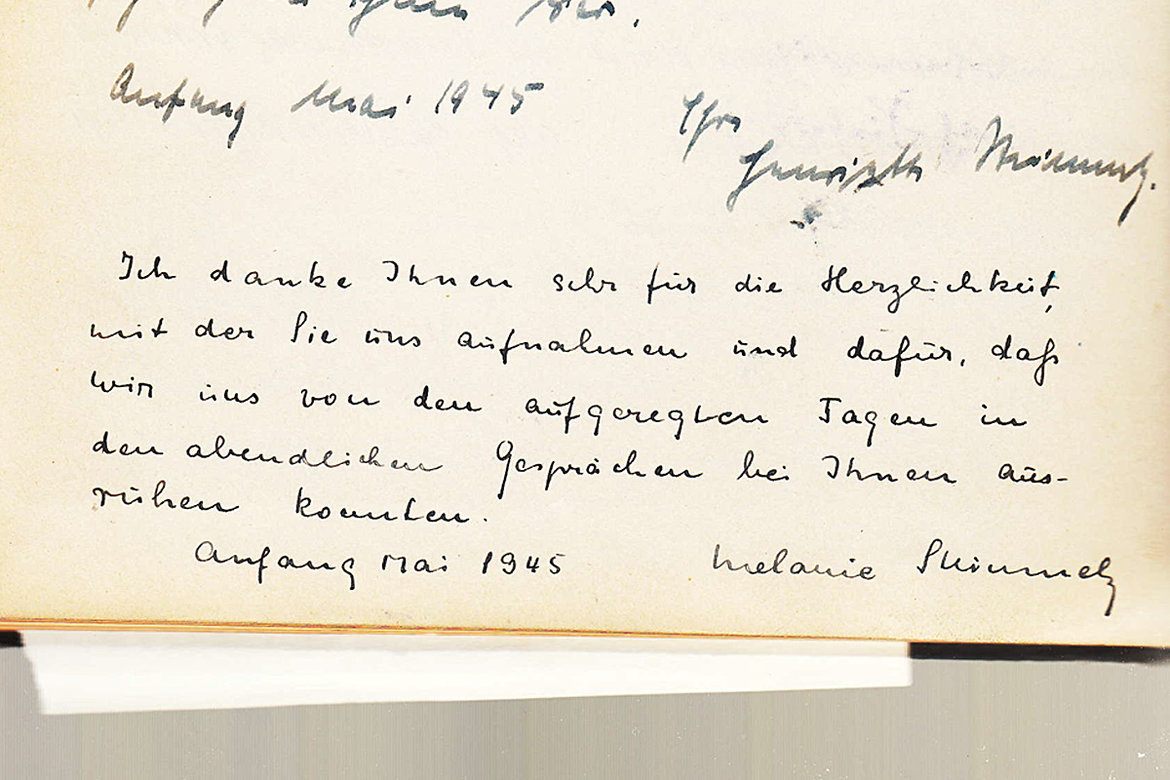 Anfang Mai 1945 Ihre
Ich danke Ihnen sehr für die Herzlichkeit,
mit der Sie uns aufnahmen und dafür, daß
wir uns von den aufgeregten Tagen in
den abendlichen Gesprächen bei Ihnen aus-
ruhen konnten.
Anfang Mai 1945 Melanie